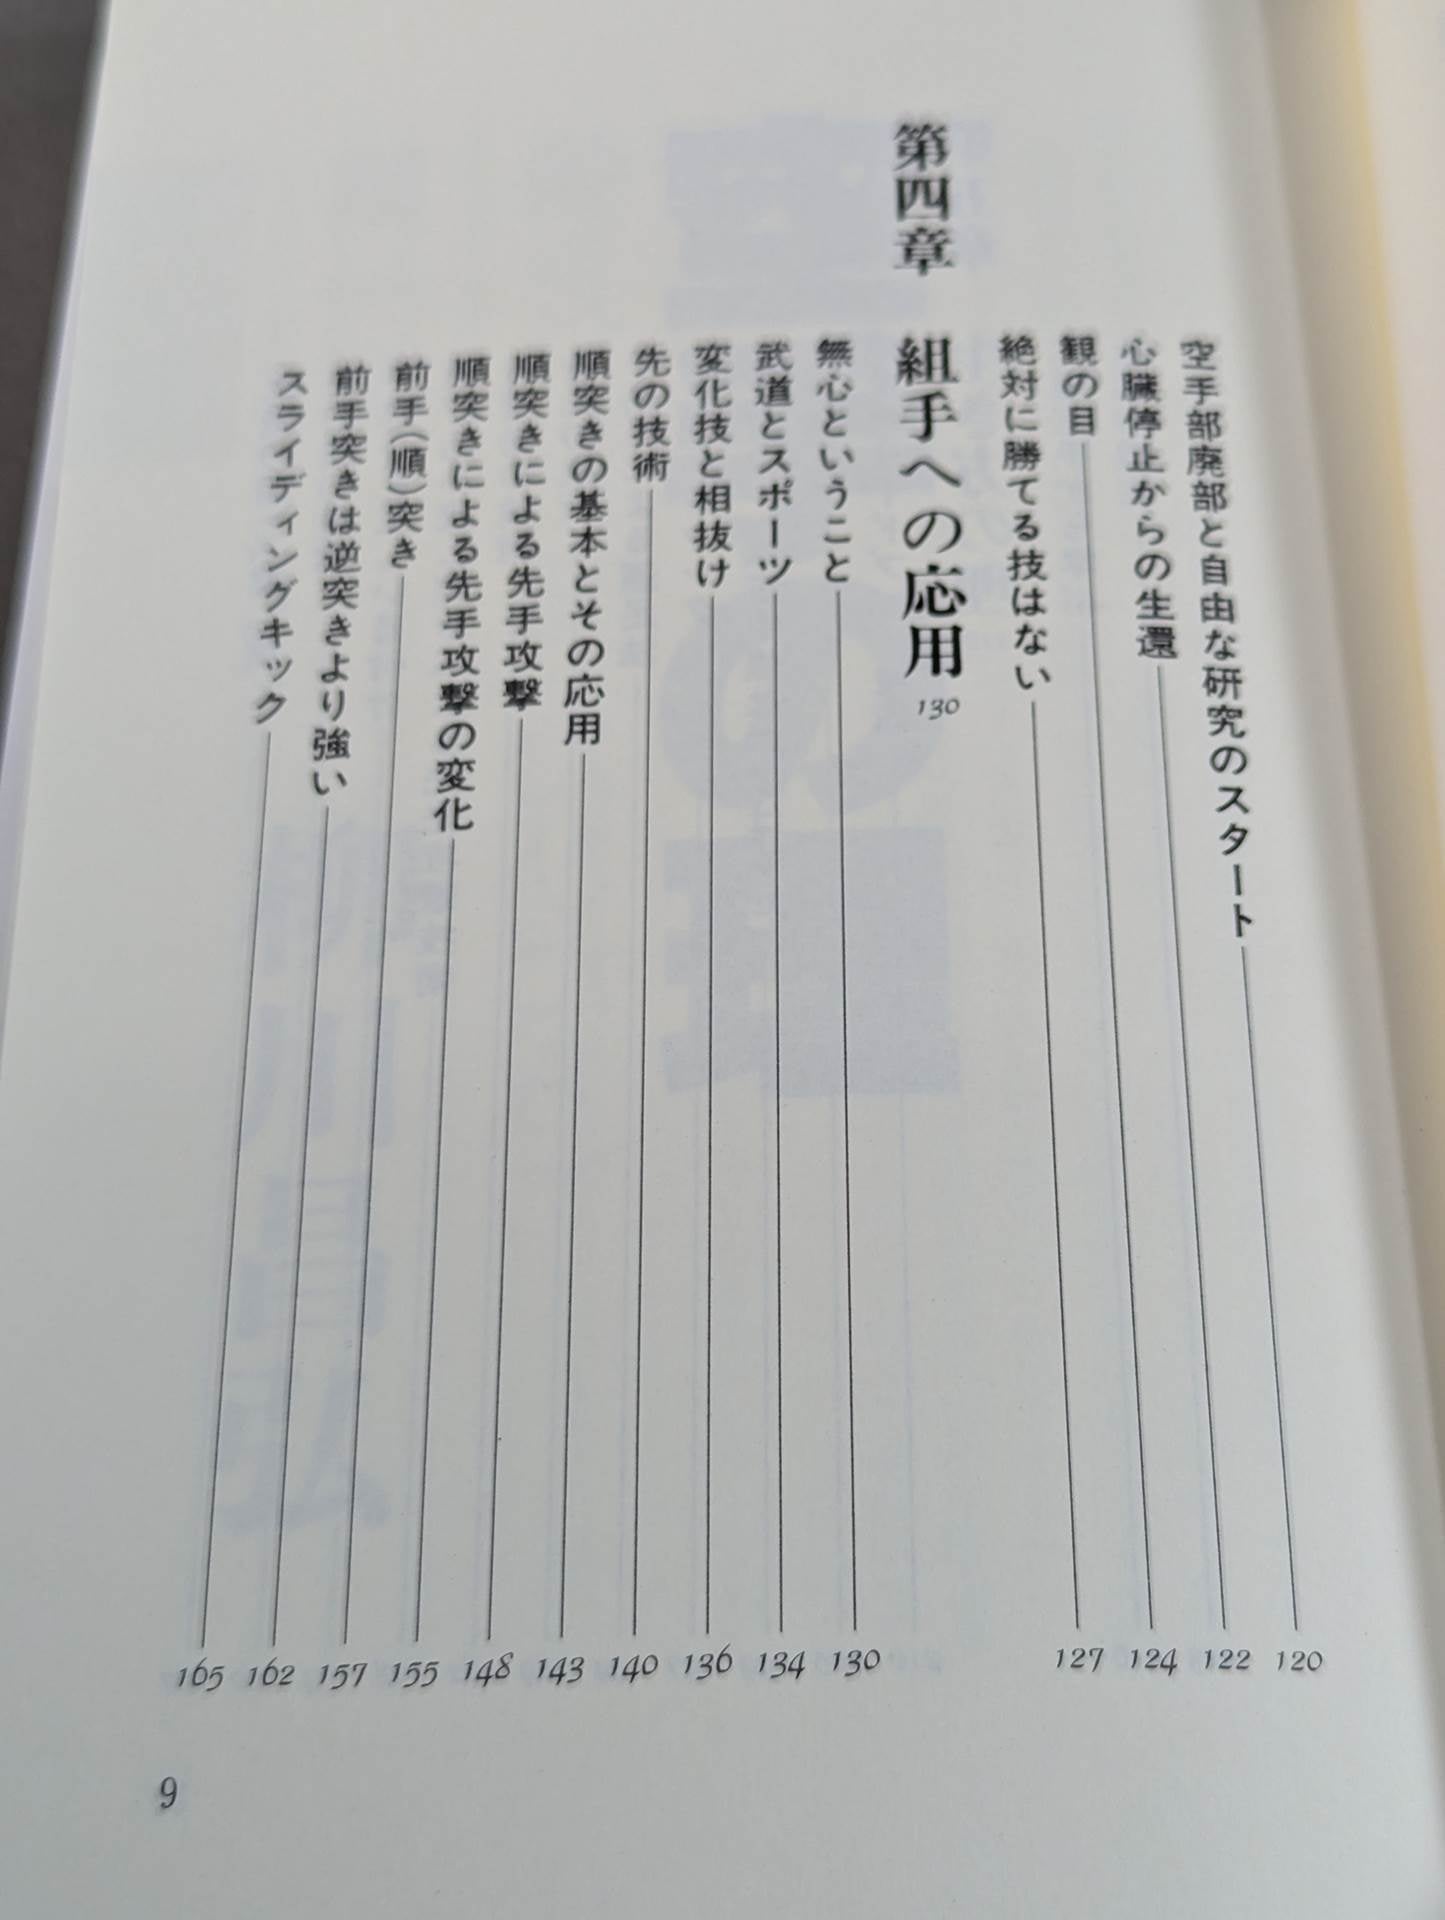 空手部廃部と自由な研究のスタート 120
心臓停止からの生還 122
観の目 124
絶対に勝てる技はない 127
第四章 組手への応用 130
無心ということ 130
武道とスポーツ 134
変化技と相抜け 136
先の技術 140
順突きの基本とその応用 143
順突きによる先手攻撃 148
順突きによる先手攻撃の変化 155
前手(順)突き 157
前手突きは逆突きより強い 162
スライディングキック 165
9